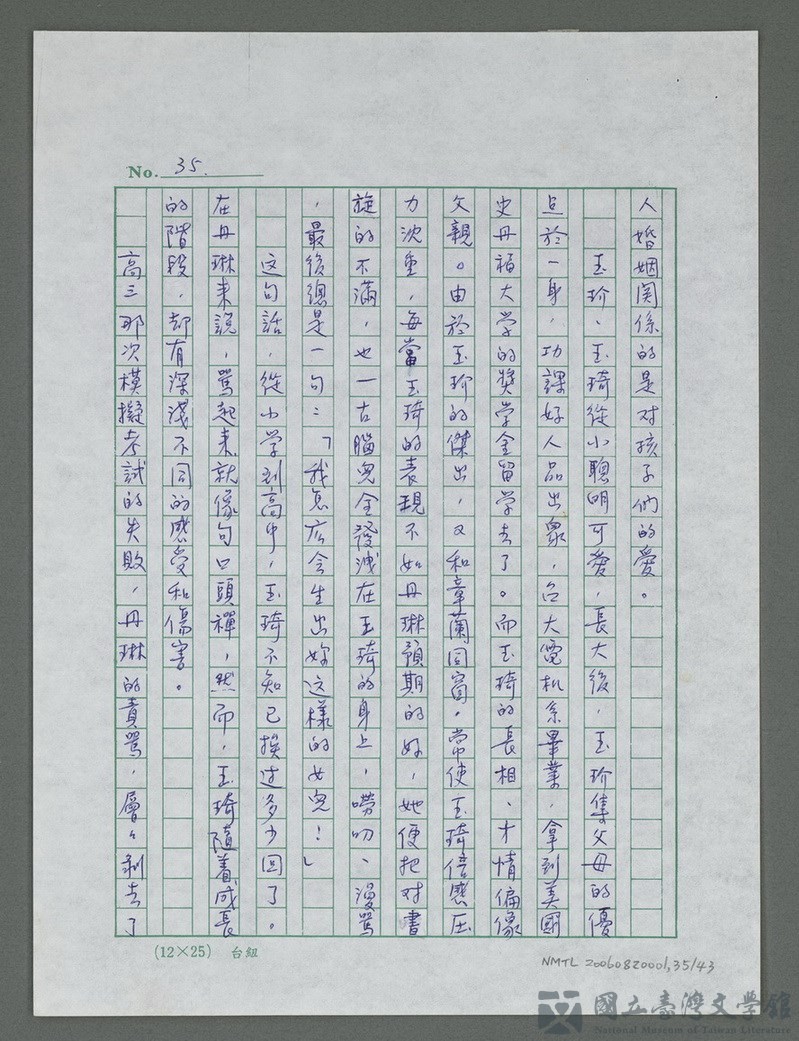 No. 35.
人婚姻関係的是对孩子们的爱。
玉玠、玉琦從小聰明可愛，長大後，玉玠集父母的優
点於一身，功課好人品出眾，台大電机系畢業，拿到美國
史丹福大学的獎学金留学去了。而玉琦的長相、才情偏像
父親。由於玉玠的傑出，又和章蘭同窗，常使玉琦倍感压
力沈重，每當玉琦的表現不如丹琳預期的好，她便把对書
旋的不滿，也一古腦兒全發洩在玉琦的身上，嘮叨、漫罵
，最後總是一句：「我怎庅会生出妳这樣的女兒！」
这句話，從小学到高中，玉琦不知已挨过多少回了。
在丹琳来說，罵起来就像句口頭禪，然而，玉琦隨着成長
的階段，却有深淺不同的感受和傷害。
高三那次模擬考試的失敗，丹琳的責罵，層々剥去了
(12×25) 台紐
NMTL 20060820001,35/43
國立臺灣文學館
National Museum of Taiwan Literature